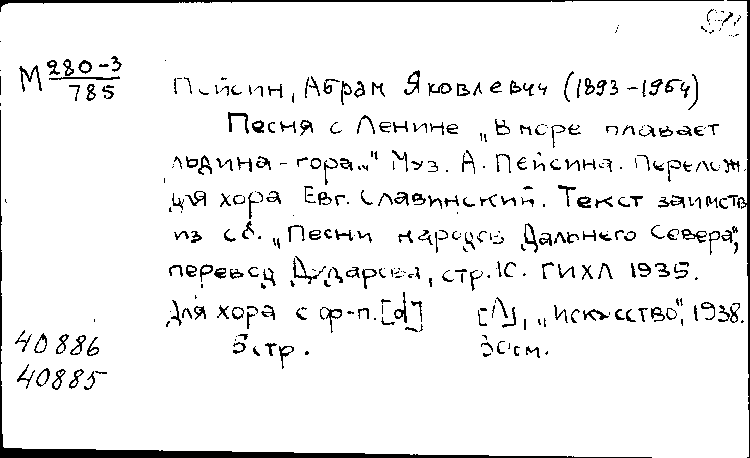 М 280-3
785
Пейсин, Абрам Яковлевич (1893-1954)
Песня о Ленине „В море плавает
льдина-гора..." Муз. А. Пейсина. Перелож.
для хора Евг. Славинский. Текст заимств
из сб. „Песни народов Дальнего Севера",
перевод Дударова, стр. 10. ГИХЛ 1935.
Для хора с ф-п. [d] [Л], „Искусство", 1938.
5 стр. 30 см.
40886
40885